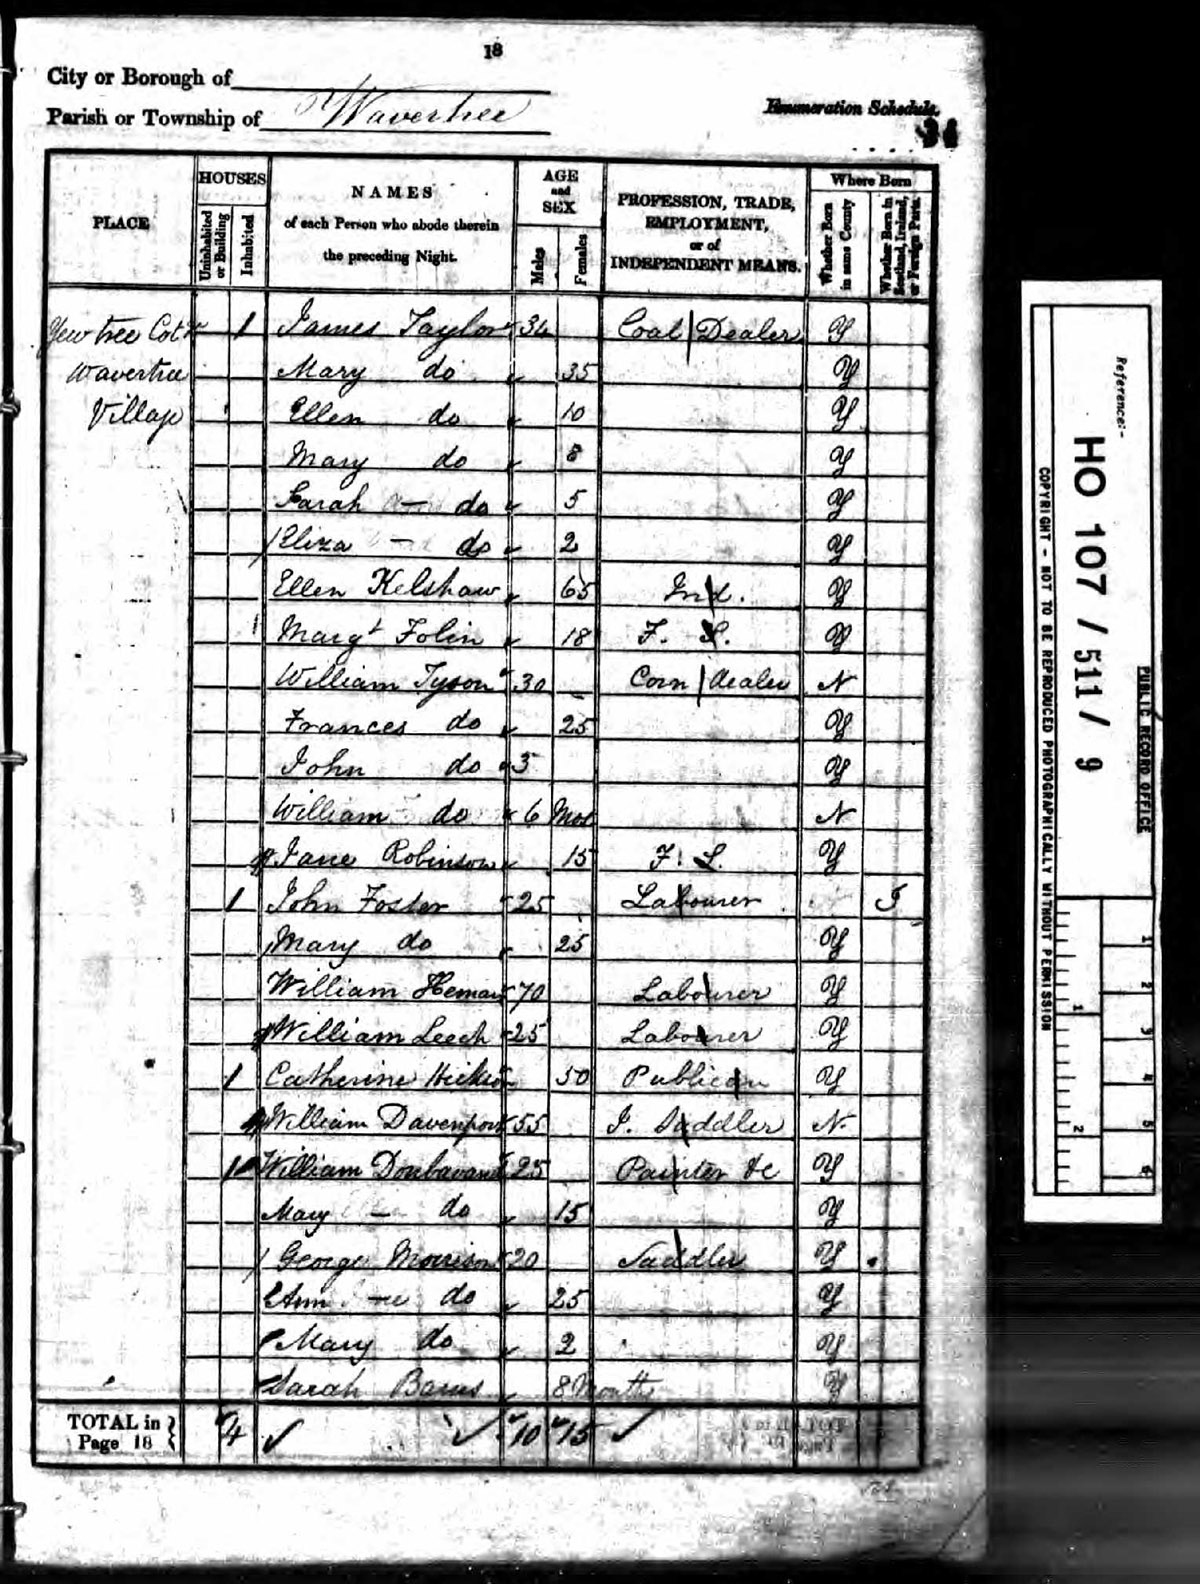 18
City or Borough of
Parish or Township of Wavertree
Enumeration Schedule.
PLACE
HOUSES
Uninhabited or Building
Inhabited
NAMES
of each Person who abode therein
the preceding Night.
AGE
and
SEX
Males
Females
PROFESSION, TRADE,
EMPLOYMENT,
or of
INDEPENDENT MEANS.
Where Born
Whether Born in same County
Whether Born in Scotland, Ireland, or Foreign Parts.
Yew tree Cot 1 James Taylor 34 Coal Dealer Y
Wavertree Mary do 35 Y
Village Ellen do 10 Y
Mary do 8 Y
Sarah do 5 Y
Eliza do 2 Y
Ellen Kelshaw 65 Ind. Y
Margt Folin 18 F. S. Y
William Tyson 30 Corn dealer N
Frances do 25 Y
John do 3 Y
William do 6 Mos N
Jane Robinson 15 F. S. Y
1 John Foster 25 Labourer I
Mary do 25 Y
William 70 Labourer Y
William Leech 25 Labourer Y
1 Catherine 50 Publican Y
William Davenport 55 J. Saddler N.
1 William 25 Painter &c Y
Mary do 15 Y
George Morrison 20 Saddler Y
Ann do 25 Y
Mary do 2 Y
Sarah 8 Months Y
TOTAL in Page 18 4 10 15
Reference:-
HO 107 / 511 / 9
PUBLIC RECORD OFFICE
COPYRIGHT - NOT TO BE REPRODUCED PHOTOGRAPHICALLY WITHOUT PERMISSION
1 2 3 4 5 6
1 2